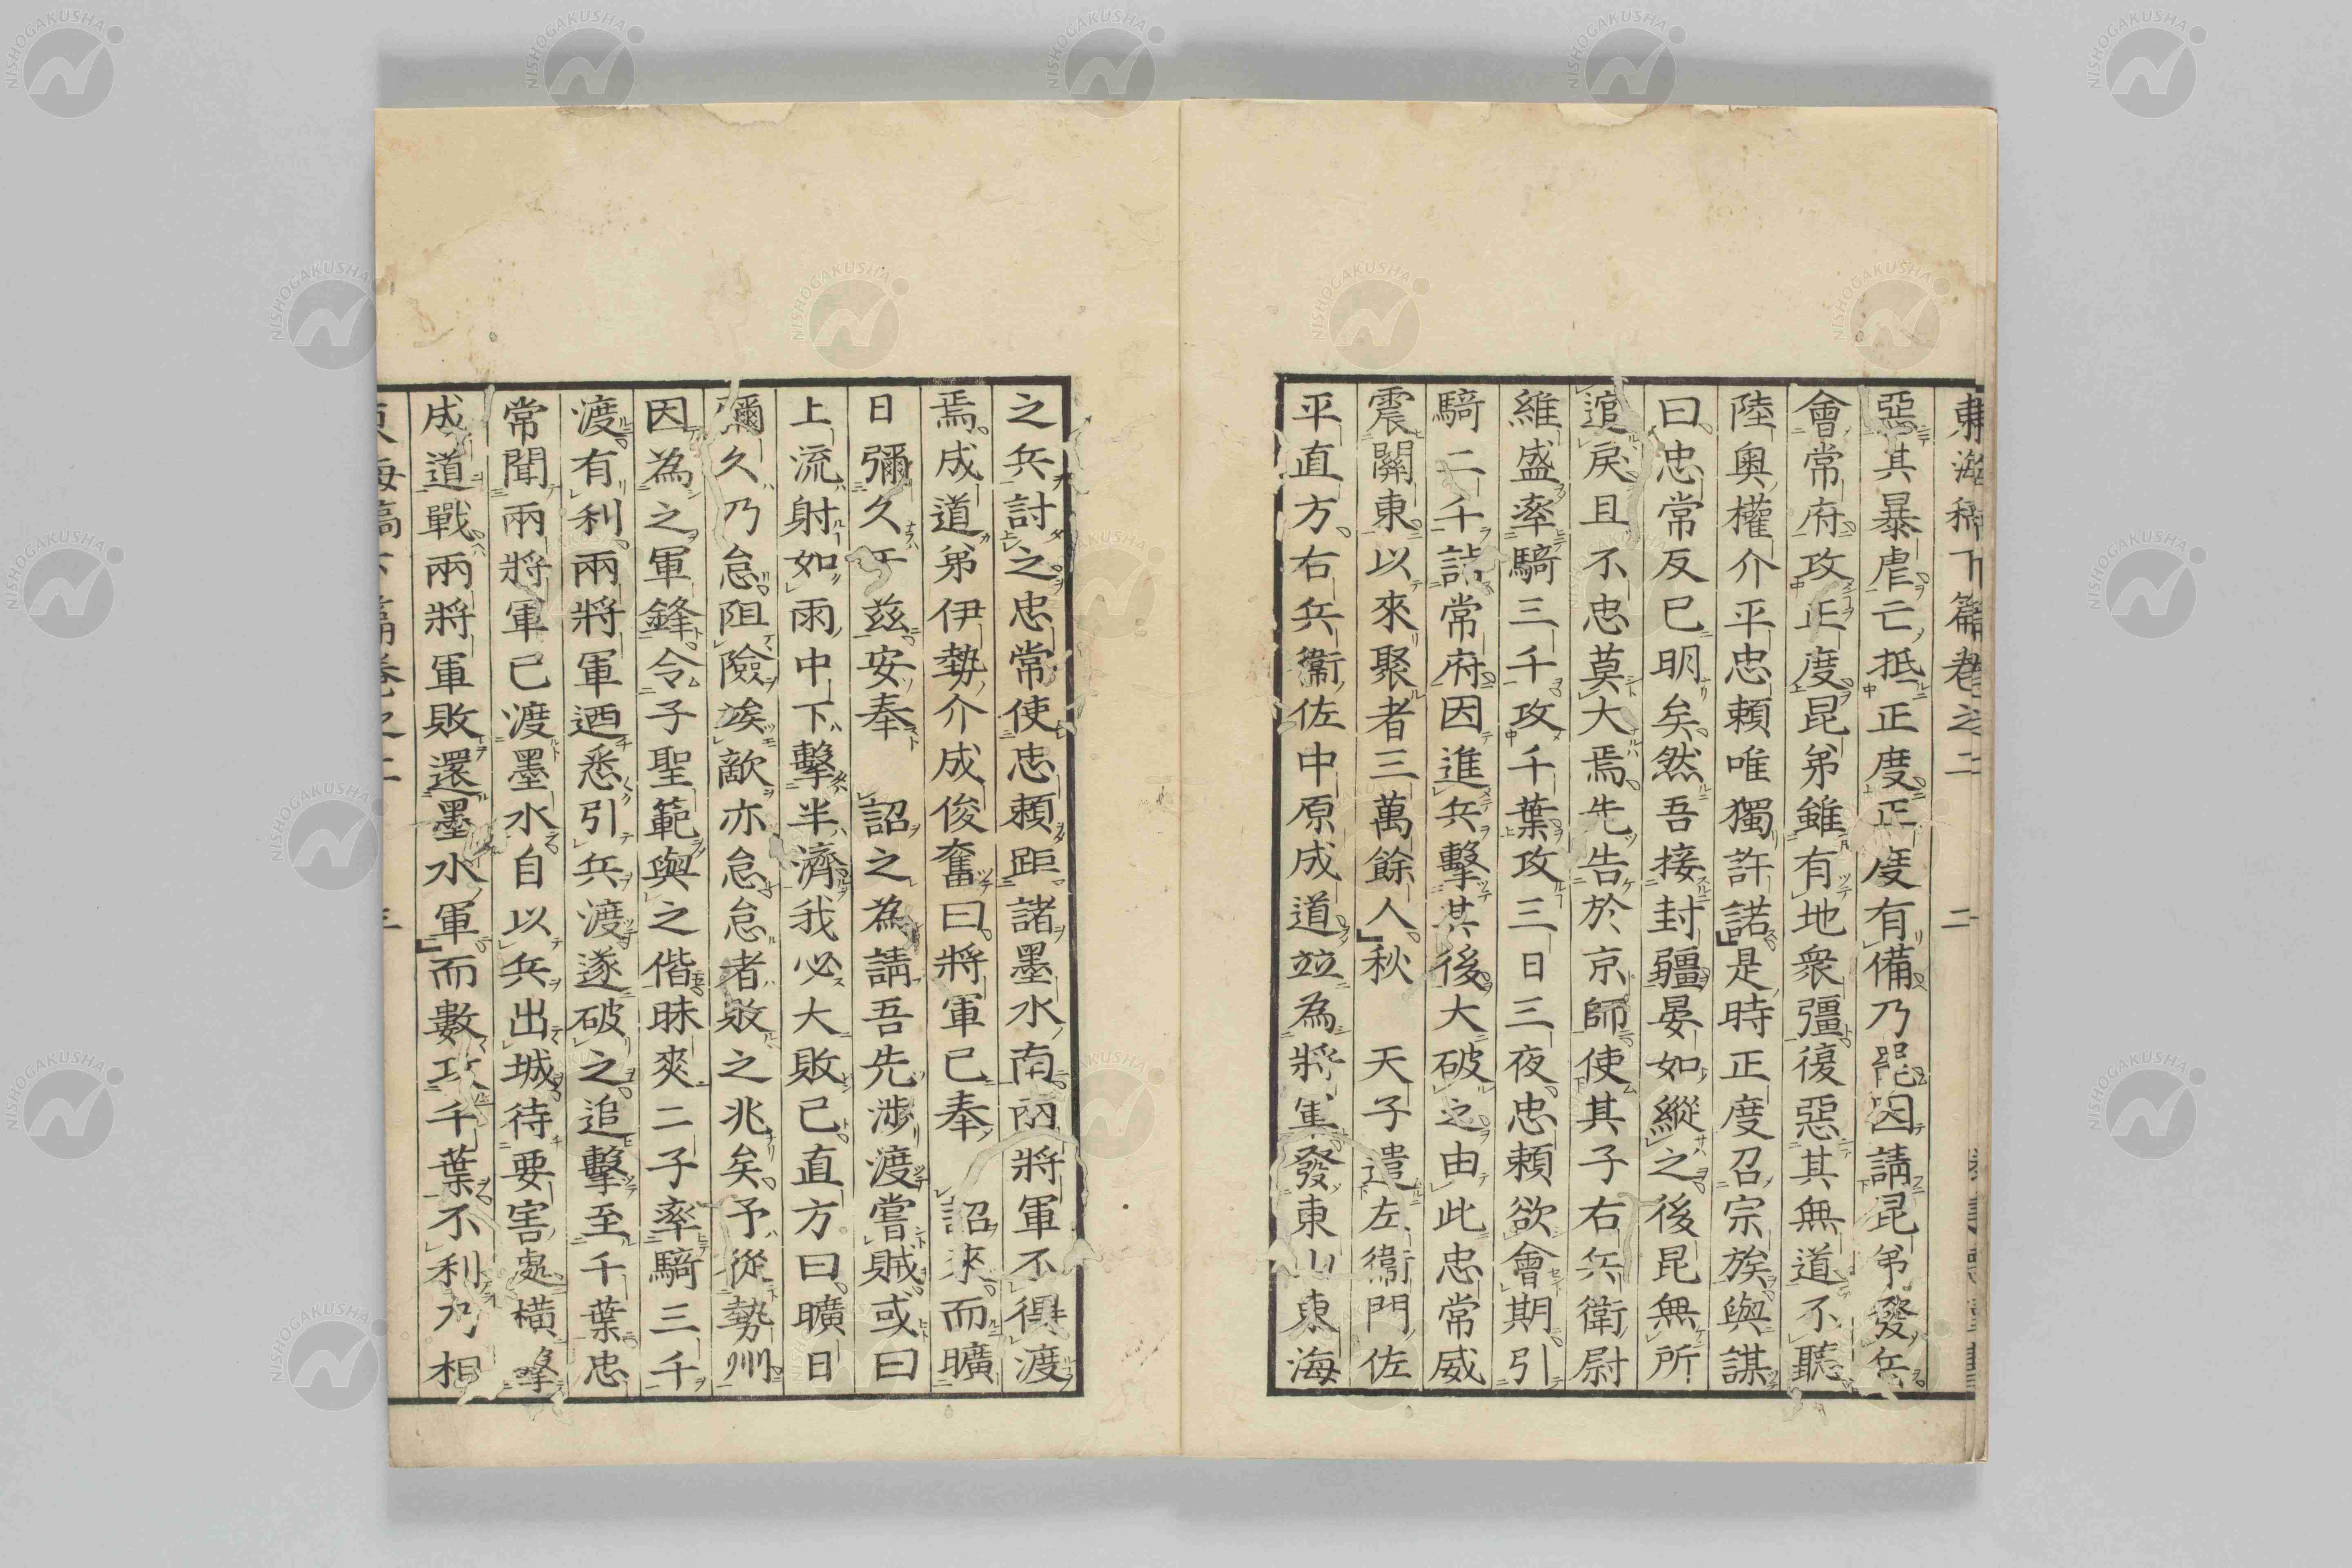 東海稿下篇卷之二 二
惡其暴虐亡抵正度正度有備乃罷因請昆弟發兵
會常府攻正度昆弟雖有地衆彊復惡其無道不聽
陸奧權介平忠賴唯獨許諾是時正度召宗族與謀
曰忠常反已明矣然吾接封疆晏如縱之後昆無所
逭戾且不忠莫大焉先告於京師使其子右兵衛尉
維盛率騎三千攻千葉攻三日三夜忠賴欲會期引
騎二千詣常府因進兵擊其後大破之由此忠常威
震關東以來聚者三萬餘人秋 天子遣左衞門佐
平直方右兵衞佐中原成道竝為將軍發東山東海
之兵討之忠常使忠賴距諸墨水南兩將軍不得渡
焉成道弟伊勢介成俊奮曰將軍已奉 詔來而曠
日彌久于茲安奉 詔之為請吾先涉渡嘗賊或曰
上流射如雨中下擊半濟我必大敗已直方曰曠日
彌久乃怠阻險埃敵亦怠怠者敗之兆矣予從勢州
因為之軍鋒令子聖範與之偕昧爽二子率騎三千
渡有利兩將軍迺悉引兵渡遂破之追擊至千葉忠
常聞兩將軍已渡墨水自以兵出城待要害處橫擊
成道戰兩將軍敗還墨水軍而數攻千葉不利乃相
東海稿下篇卷之二 三
NISHOGAKUSHA